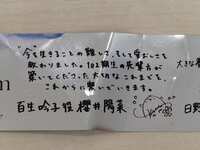 "今を生きることの難しさ、そして愛おしさを
教わりました。102期生の先輩方が
築いてくださった大切なこれまでを、
これからに繋いでいきます。
大きな
m
百生吟子役 櫻井陽菜
日野